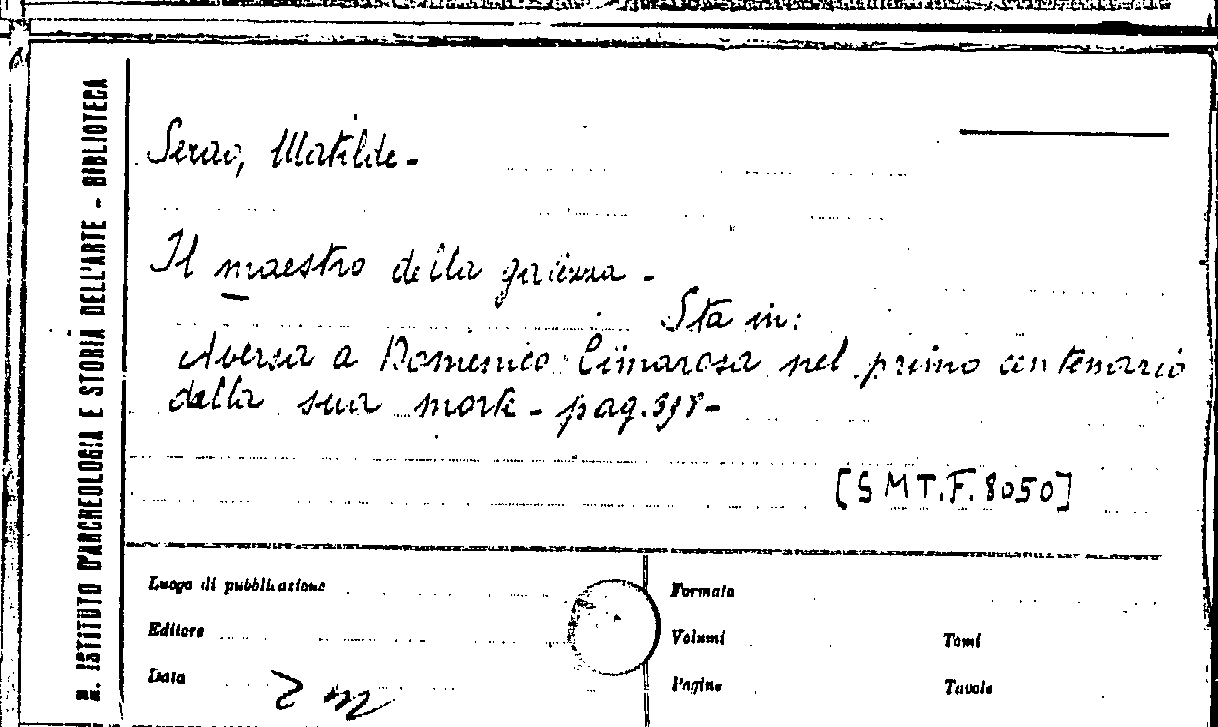 R. ISTITUTO D'ARCHEOLOGIA E STORIA DELL'ARTE - BIBLIOTECA
Serao, Matilde -
Il maestro della gaiezza -
Sta in:
Aversa a Domenico Cimarosa nel primo centenario
della sua morte - pag. 318 -
[SMT.F.8050]
Luogo di pubblicazione
Formato
Editore
Volumi
Tomi
Data
Pagine
Tavole